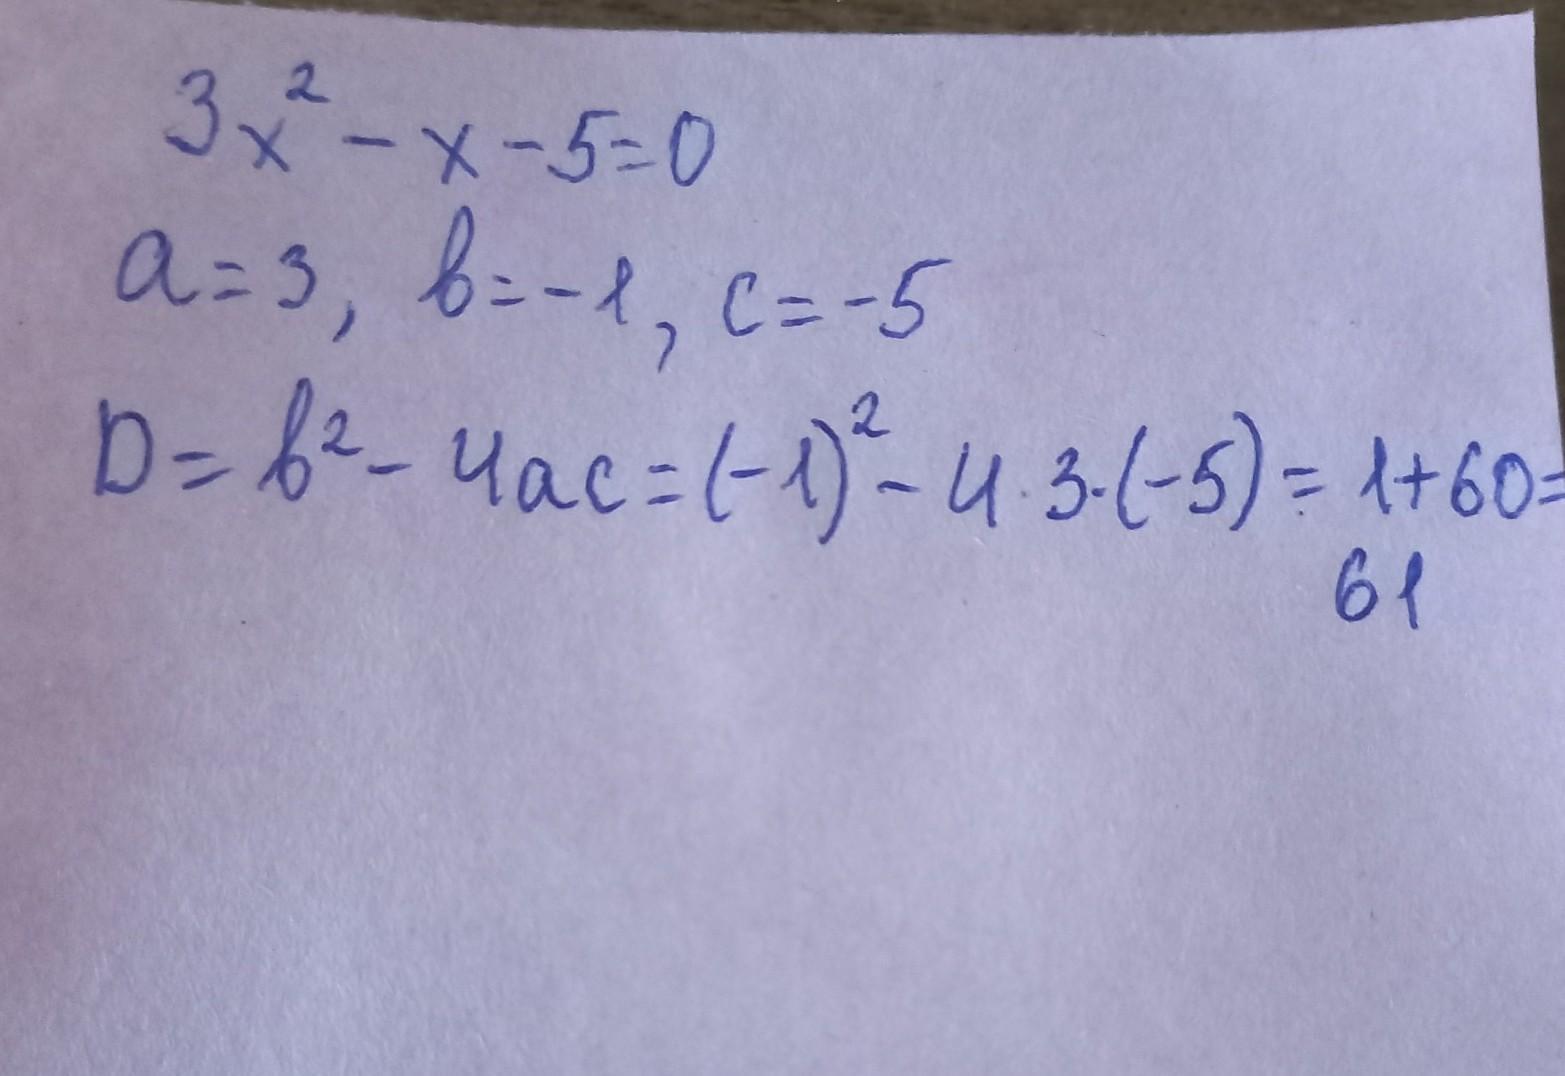 3x² - x - 5 = 0
a = 3, b = -1, c = -5
D = b² - 4ac = (-1)² - 4 · 3 · (-5) = 1 + 60 =
61